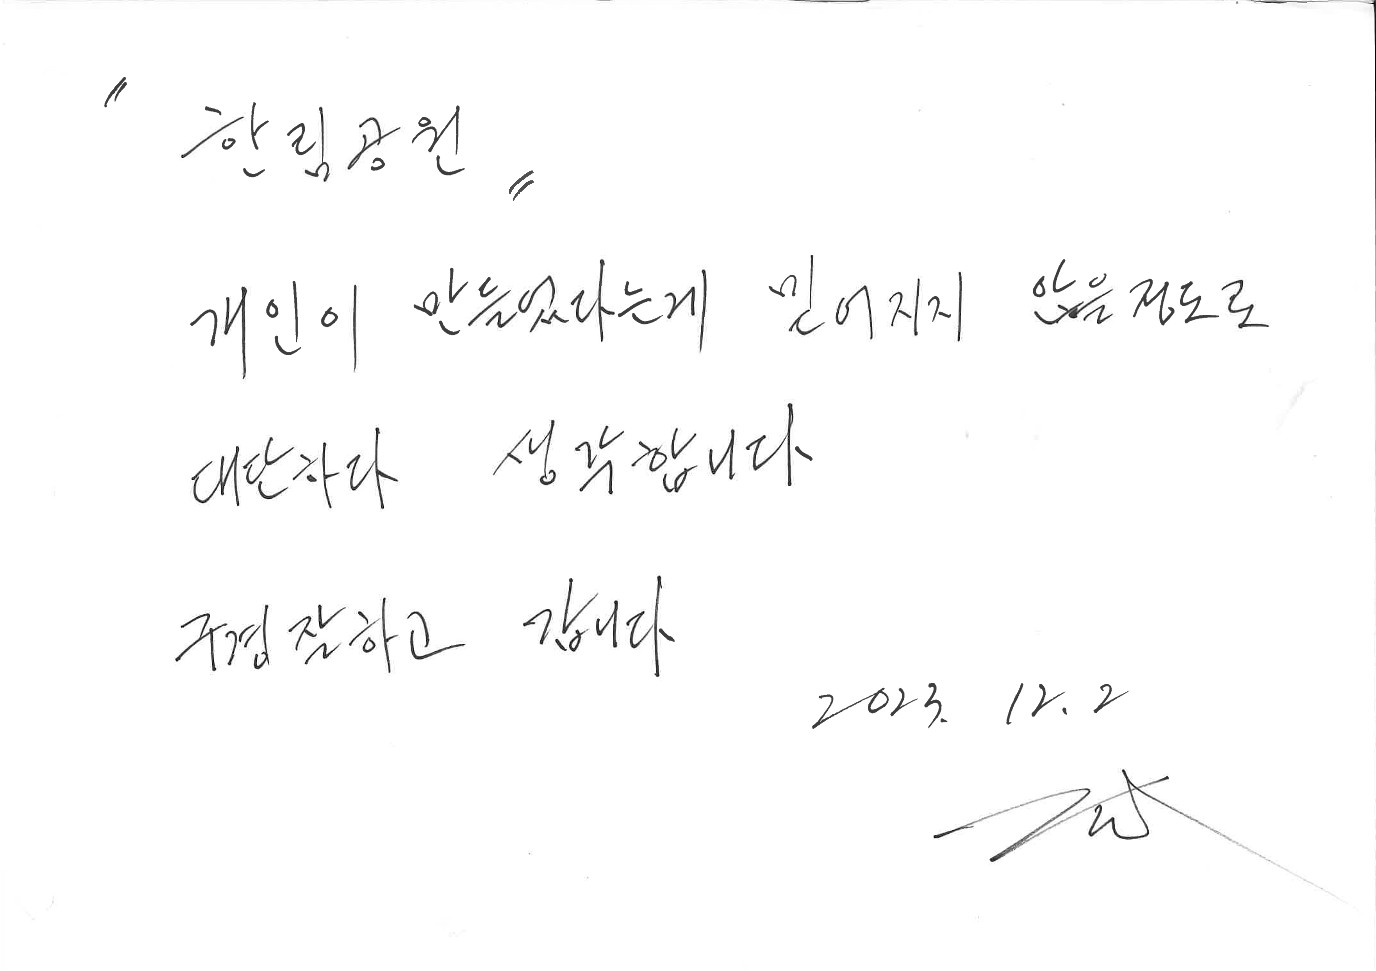 " 한림공원 "
개인이 만들었다는게 믿어지지 않을정도로
대단하다 생각합니다
구경잘하고 갑니다
2023. 12. 2